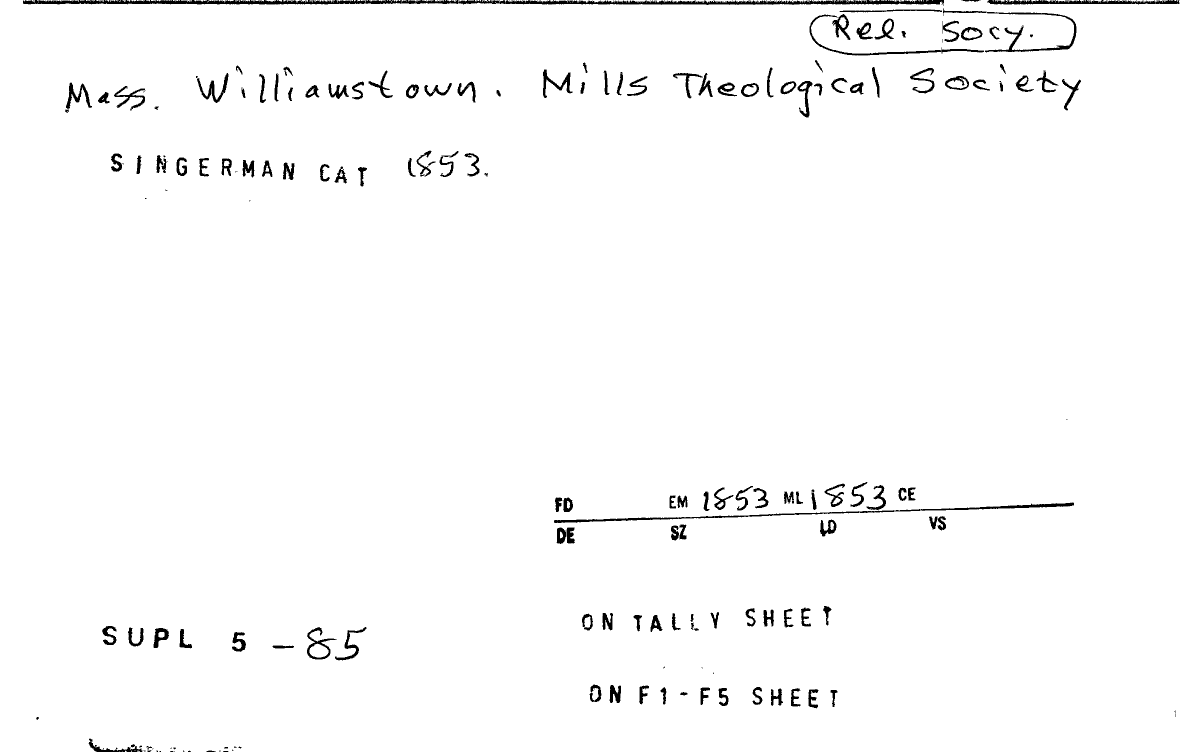 Rel. Socy.
Mass. Williamstown. Mills Theological Society
SINGERMAN CAT 1853.
FD EM 1853 ML 1853 CE
DE SZ LD VS
SUPL 5 - 85
ON TALLY SHEET
ON F1-F5 SHEET